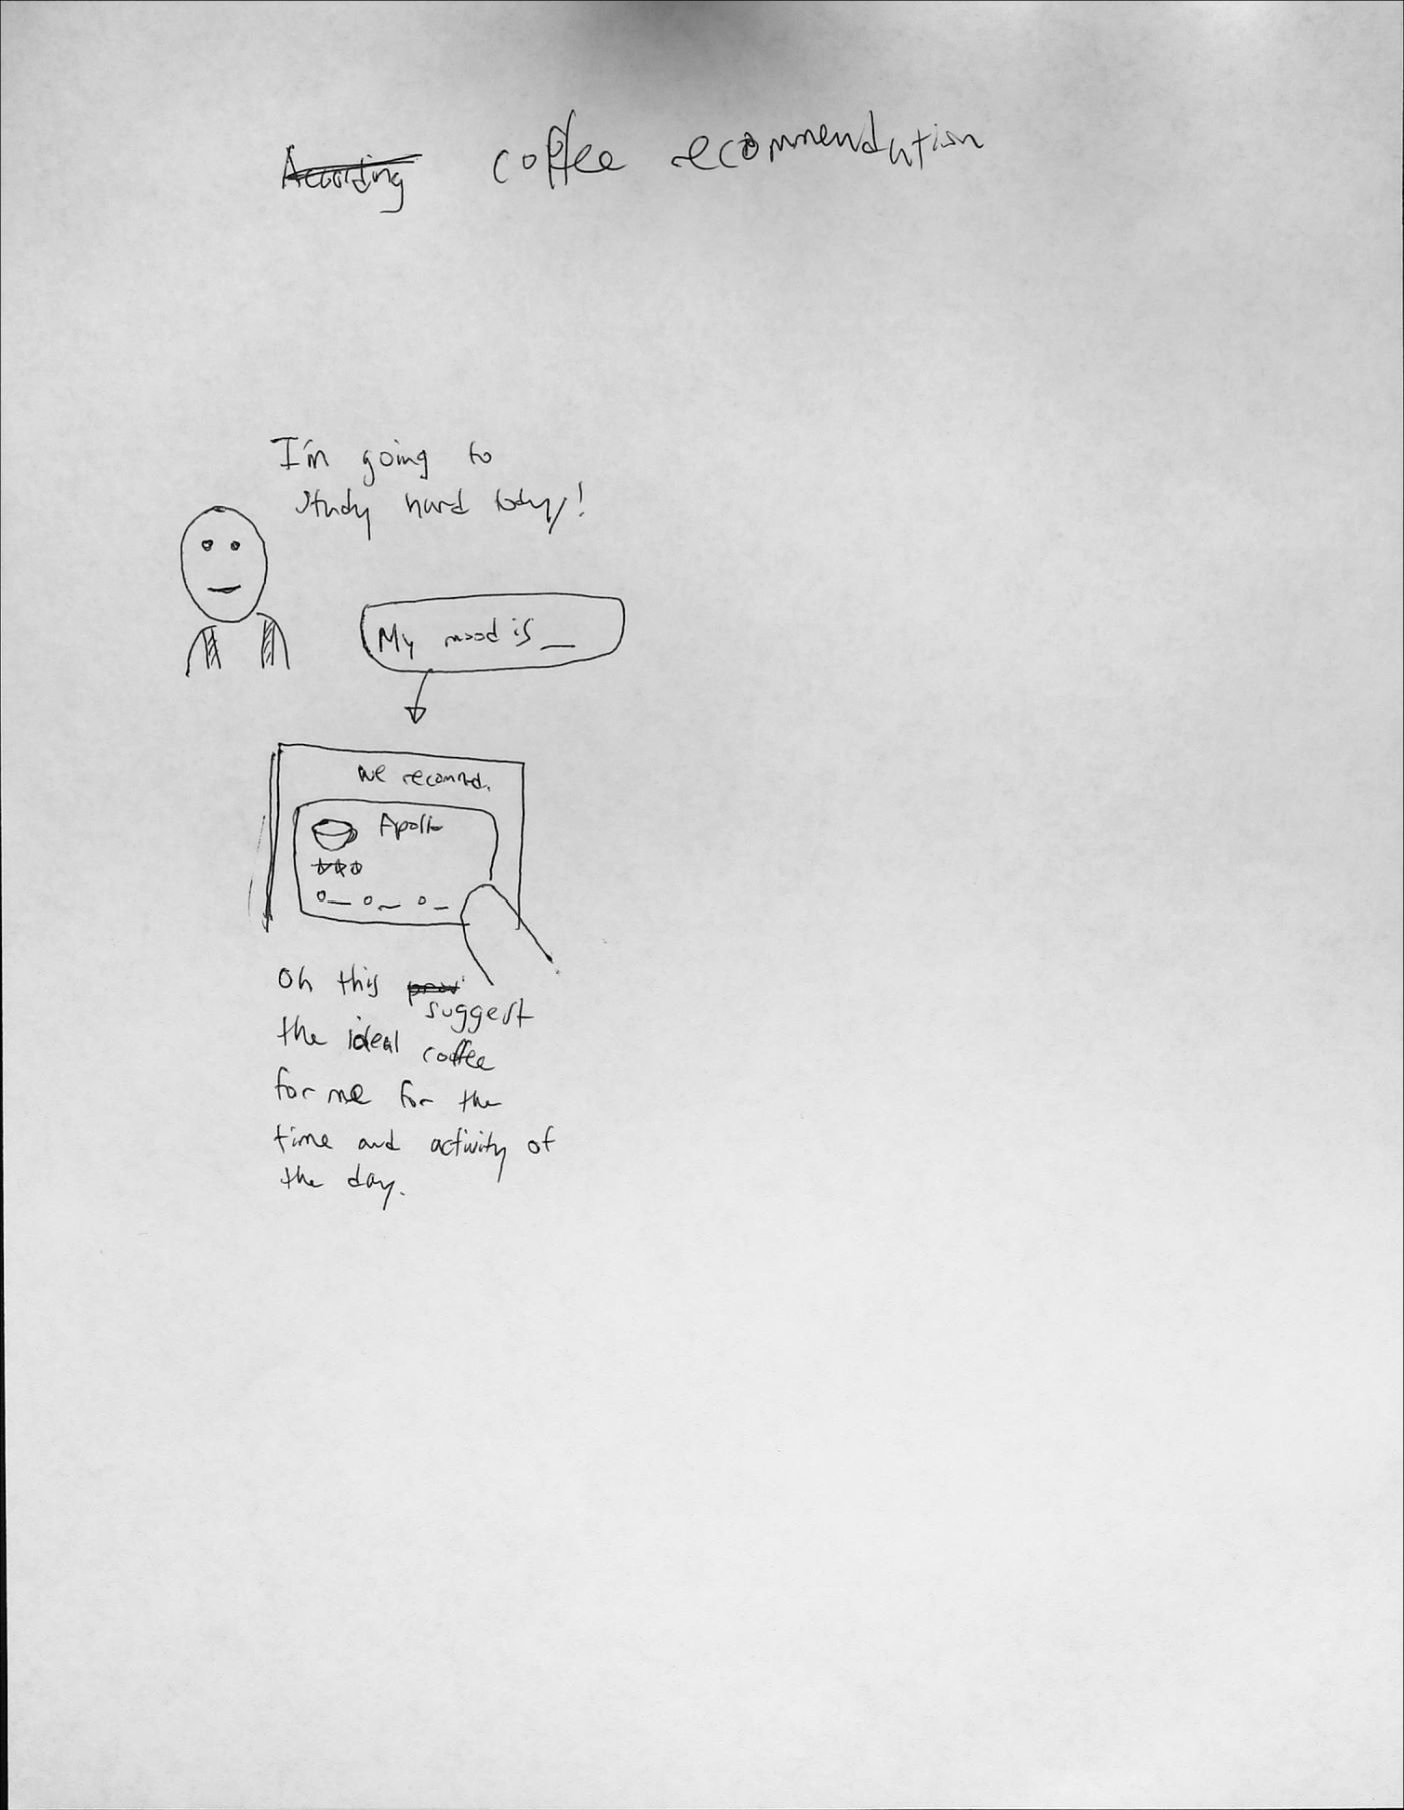 According coffee recommendation
I'm going to
study hard today!
My mood is _
we recommd.
Apollo
Oh this
suggest
the ideal coffee
for me for the
time and activity of
the day.